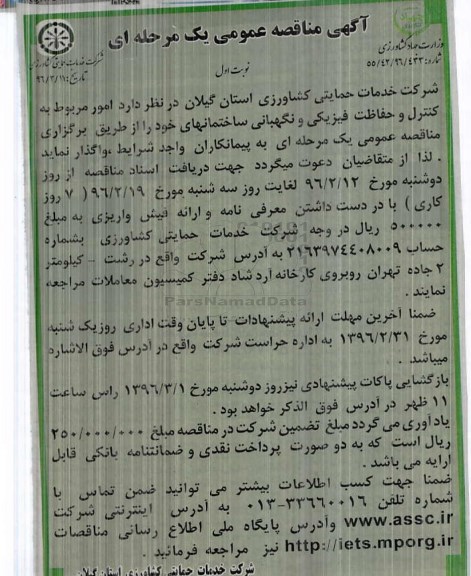 آگهی مناقصه عمومی یک مرحله ای
وزارت جهاد کشاورزی
شماره: ۵۵/۴۲/۹۶/۴۳۳
نوبت اول
شرکت خدمات حمایتی کشاورزی
تاریخ: ۹۶/۲/۱۱
شرکت خدمات حمایتی کشاورزی استان گیلان در نظر دارد امور مربوط به
کنترل و حفاظت فیزیکی و نگهبانی ساختمانهای خود را از طریق برگزاری
مناقصه عمومی یک مرحله ای به پیمانکاران واجد شرایط واگذار نماید
. لذا از متقاضیان دعوت میگردد جهت دریافت اسناد مناقصه از روز
دوشنبه مورخ ۹۶/۲/۱۲ لغایت روز سه شنبه مورخ ۹۶/۲/۱۹ ( ۷ روز
کاری ) با در دست داشتن معرفی نامه و ارائه فیش واریزی به مبلغ
۵۰۰۰۰۰ ریال در وجه شرکت خدمات حمایتی کشاورزی بشماره
حساب ۲۱۶۳۹۷۴۴۰۸۰۰۹ به آدرس شرکت واقع در رشت - کیلومتر
۲ جاده تهران روبروی کارخانه آرد شاد دفتر کمیسیون معاملات مراجعه
نمایند .
ParsNamadData
ضمنا آخرین مهلت ارائه پیشنهادات تا پایان وقت اداری روز یک شنبه
مورخ ۱۳۹۶/۲/۳۱ به اداره حراست شرکت واقع در آدرس فوق الاشاره
میباشد .
بازگشایی پاکات پیشنهادی نیز روز دوشنبه مورخ ۱۳۹۶/۳/۱ راس ساعت
۱۱ ظهر در آدرس فوق الذکر خواهد بود .
یادآوری می گردد مبلغ تضمین شرکت در مناقصه مبلغ ۲۵۰/۰۰۰/۰۰۰
ریال است که به دو صورت پرداخت نقدی و ضمانتنامه بانکی قابل
ارایه می باشد .
ضمنا جهت کسب اطلاعات بیشتر می توانید ضمن تماس با
شماره تلفن ۳۳۶۶۰۰۱۶-۰۱۳ به آدرس اینترنتی شرکت
www.assc.ir وآدرس پایگاه ملی اطلاع رسانی مناقصات
http://iets.mporg.ir نیز مراجعه فرمائید .
شرکت خدمات حمایتی کشاورزی استان گیلان